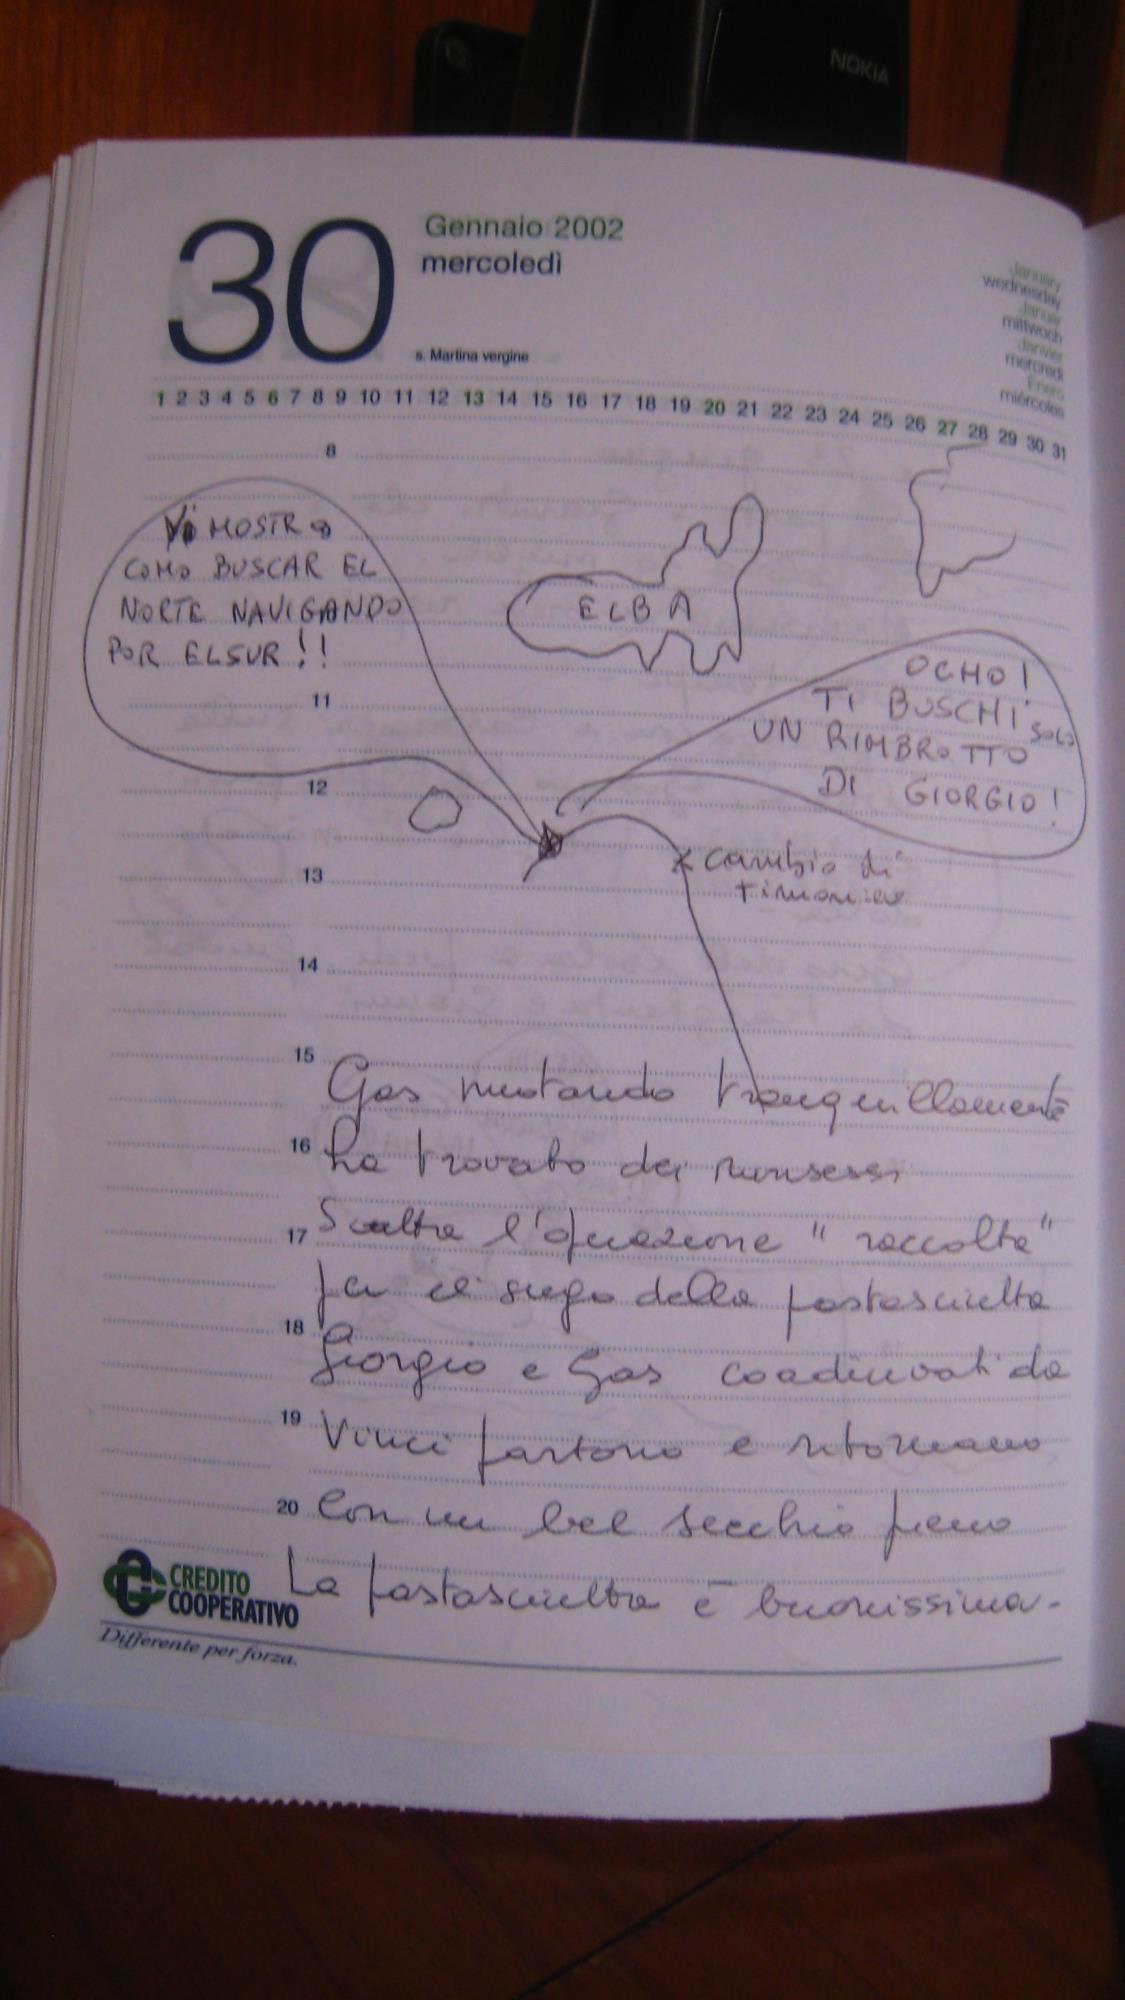 NOKIA
30
Gennaio 2002
mercoledì
s. Martina vergine
January
wednesday
Januar
mittwoch
Janvier
mercredi
Enero
miércoles
1 2 3 4 5 6 7 8 9 10 11 12 13 14 15 16 17 18 19 20 21 22 23 24 25 26 27 28 29 30 31
8
Vi MOSTRO
COMO BUSCAR EL
NORTE NAVIGANDO
POR EL SUR!!
ELBA
OCHO!
TI BUSCHI SOLO
UN RIMBROTTO
DI GIORGIO!
11
12
13
cambio di
timoniere
14
15
Gas nuotando tranquillamente
16
ha trovato dei
17
Scatta l'operazione "raccolta"
per il sugo della pastasciutta
18
Giorgio e Gas coadiuvati da
19
Vinci partono e ritornano
20
Con un bel secchio pieno
La pastasciutta è buonissima.
CREDITO
COOPERATIVO
Differente per forza.